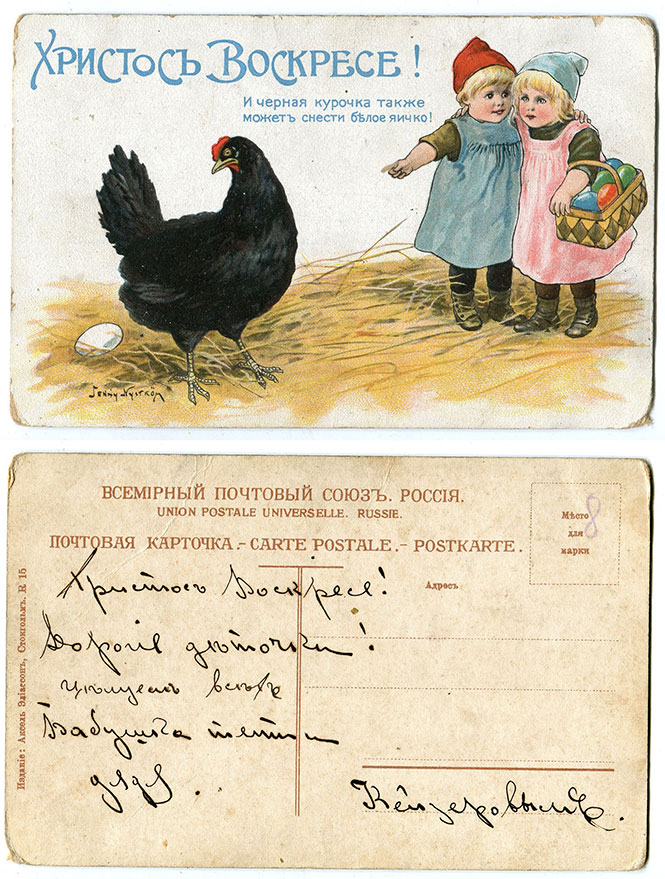 Христосъ Воскресе!
И черная курочка также
можетъ снести бѣлое яичко!
Jenny Nyström
ВСЕМІРНЫЙ ПОЧТОВЫЙ СОЮЗЪ. РОССІЯ.
UNION POSTALE UNIVERSELLE. RUSSIE.
ПОЧТОВАЯ КАРТОЧКА.-CARTE POSTALE.-POSTKARTE.
Мѣсто
для
марки
8
Адресъ
Изданіе: Аксель Эліассонъ, Стокгольмъ. R 15
Христосъ Воскресе!
Дорогіе дѣточки!
Цѣлуемъ всѣхъ
Бабушка тетки
дядя.
Кейзеровымъ.